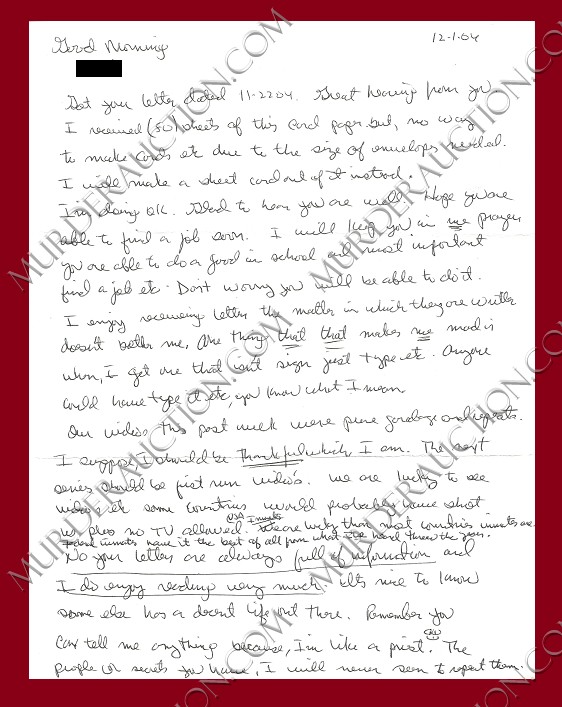 Good Morning 12-1-04
Got your letter dated 11-2204. Great hearing from you
I received (50) sheets of this card paper but, no way
to make cards etc due to the size of envelopes needed.
I will make a sheet card out of it instead.
I'm doing OK. Glad to hear you are well. Hope you are
able to find a job soon. I will keep you in me prayer
you are able to do a good in school and most important
find a job etc. Don't worry you will be able to do it.
I enjoy receiving letter the matter in which they are written
doesn't bother me. One thing that that makes me mad is
when, I get one that isn't sign just type etc. Anyone
could have type it etc, you know what I mean.
Our videos this past week were pure garbage and repeats.
I suppose, I should be thankful which, I am. The next
series should be first run video's. We are lucky to see
videos etc some countries would probably have shot
us plus no TV allowed. USA Inmates are lucky than most countries inmates are.
Federal inmates have it the best of all from what I've heard threw the years.
No your letters are always full of information and
I do enjoy reading very much. It's nice to know
some else has a decent life out there. Remember you
can tell me anything because, I'm like a priest. The
people or secrets you have, I will never seem to repeat them.
MURDERAUCTION.COM